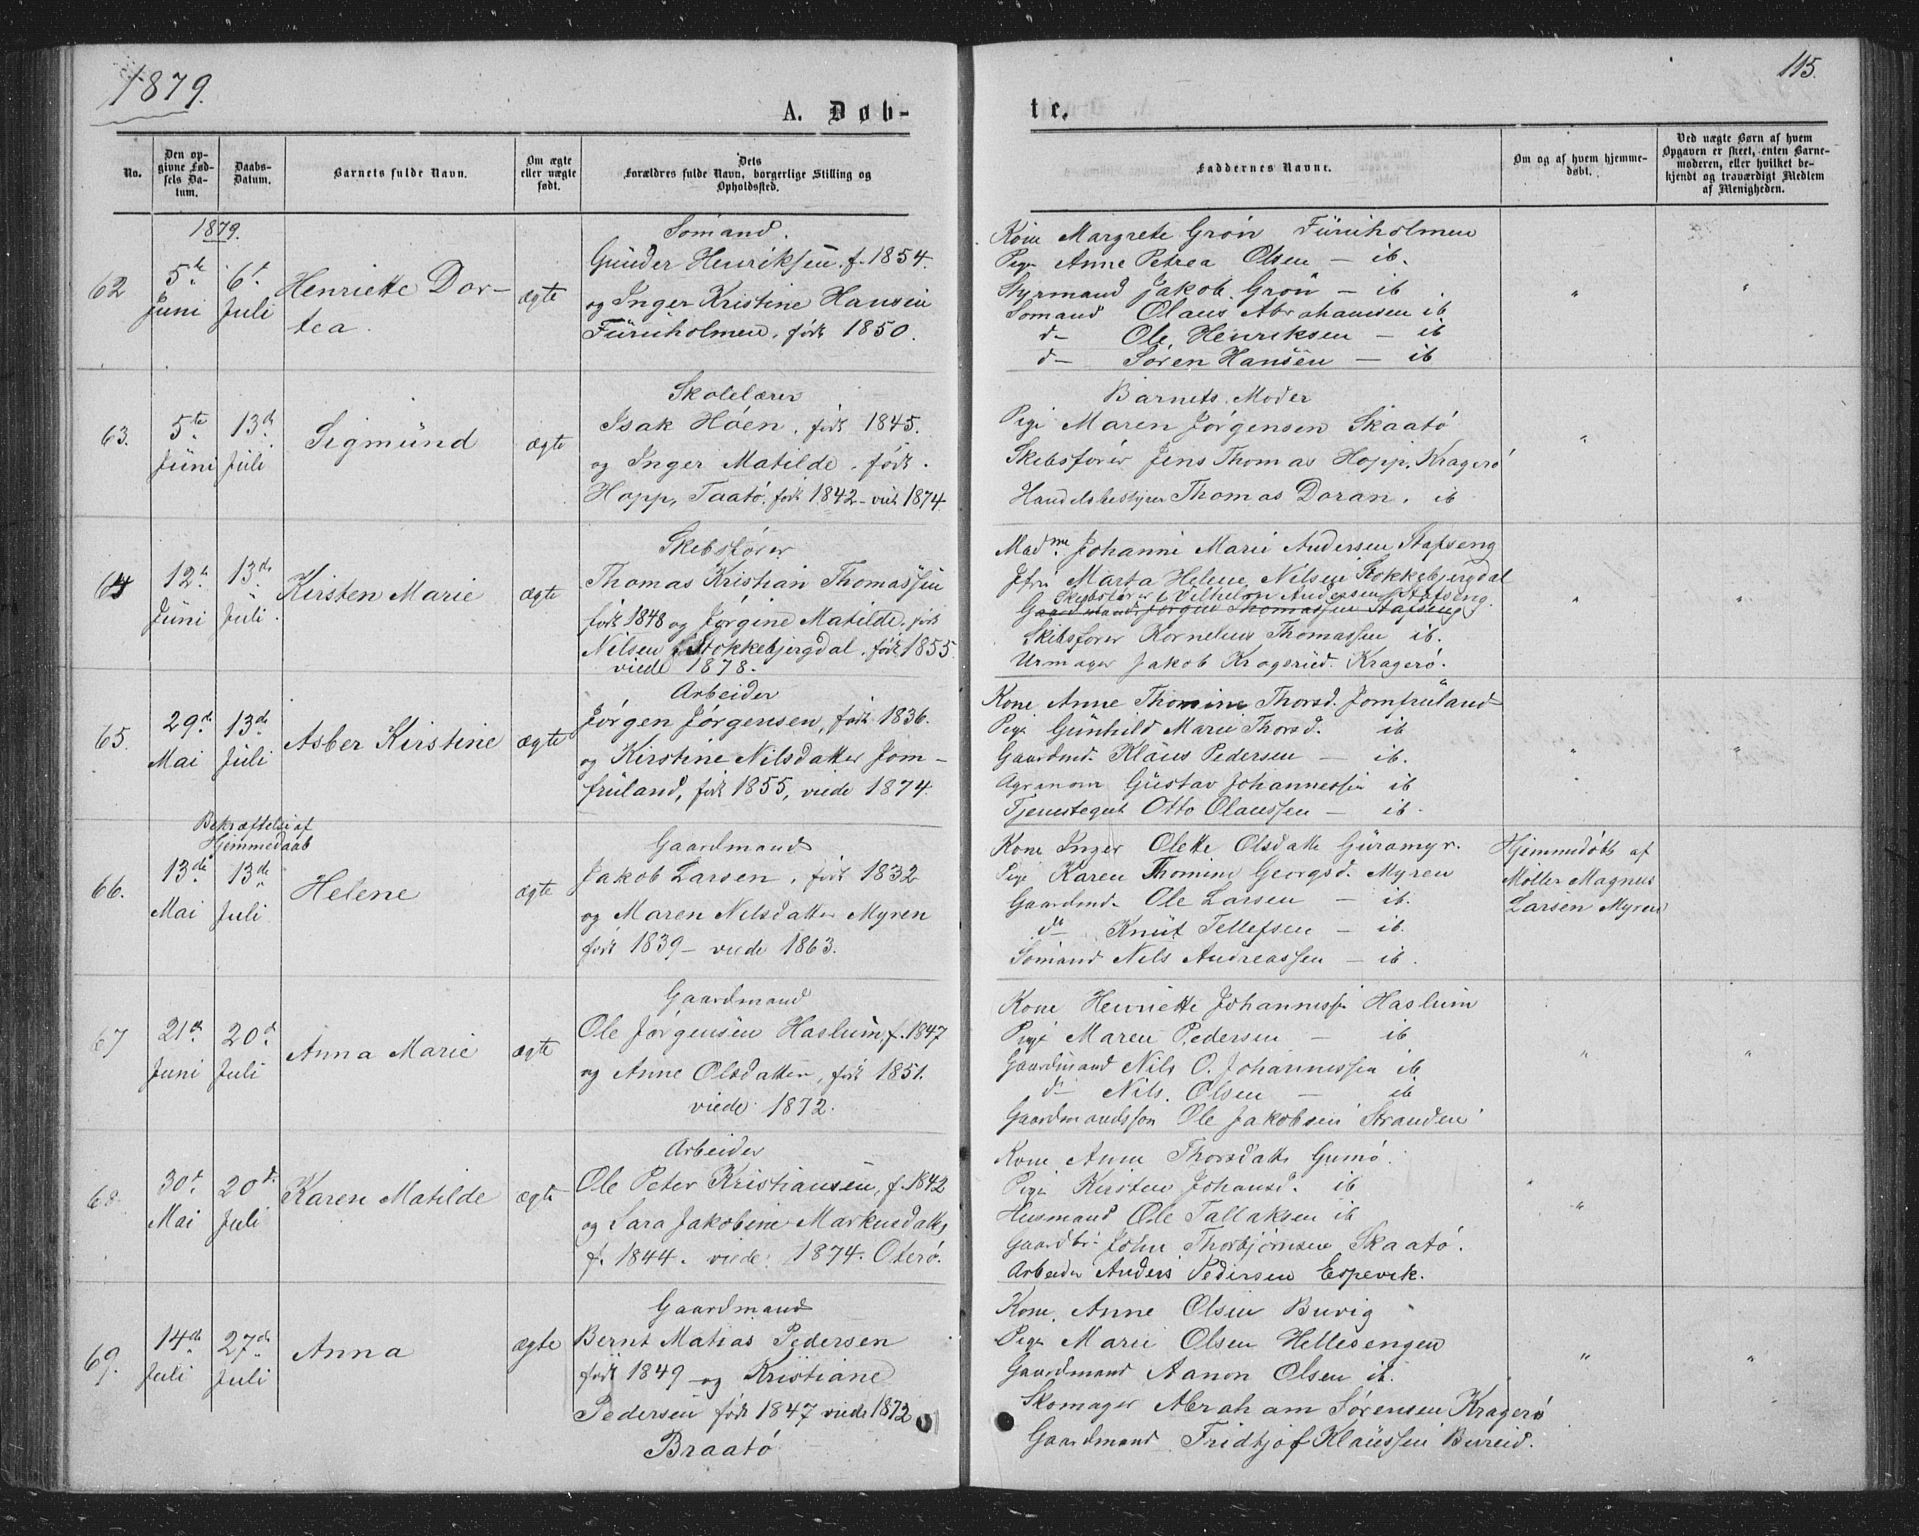 1879.
115.
A. Døb-
te.
No.
Den op-
givne Fød-
sels Da-
tum.
Daabs-
Datum.
Barnets fulde Navn.
Om ægte
eller uægte
født.
Dets
Forældres fulde Navn, borgerlige Stilling og
Opholdssted.
Faddernes Navne.
Om og af hvem hjemme-
døbt.
Ved uægte Børn af hvem
Opgaven er skeet, enten Barne-
moderen, eller hvilket be-
kjendt og troværdigt Medlem
af Menigheden.
1879.
62
5te
Juni
6te
Juli
Henriette Dor-
tea.
ægte
Sømand.
Gunder Henriksen. f. 1854.
og Inger Kristine Hansen
Furuholmen, født 1850.
Kone Margrete Grøn Furuholmen
Pige Anne Petrea Olsen — ib.
Styrmand Jakob Grøn — ib.
Sømand Olaus Abrahamsen ib
d— Ole Henriksen — ib
d— Søren Hansen — ib
"
"
63.
5te
Juni
13de
Juli
Sigmund
ægte
Skolelærer
Isak Höen, født 1845.
og Inger Matilde, født
Hopp, Taatö, født 1842 - viet 1874
Barnets Moder
Pige Maren Jörgensen Skaatö
Skibsfører Jens Thomas Hopp, Kragerö
Handelsbestyrer Thomas Doran. ib
"
64
12te
Juni
13de
Juli.
Kirsten Marie
ægte
Skibsfører
Thomas Kristian Thomassen
født 1848 og Jørgine Matilde, født
Nilsen Stokkebjergdal, født 1855
viede 1878.
Madme. Johanne Marie Andersen Stafseng
Jfr. Marta Helene Nilsen Stokkebjergdal
Skibsfører Vilhelm Andersen Stafseng.
Gaardmand Jørgen Thomassen Stafseng
Skibsfører Kornelius Thomassen ib.
Urmager Jakob Kragerø.
"
"
65.
29de
Mai
13de
Juli
Asber Kirstine
ægte
Arbeider
Jørgen Jørgensen, født 1836.
og Kirstine Nilsdatter Jom-
fruland, født 1855, viede 1874.
Kone Anne Thomine Thorsd. Jomfruland
Pige Gunhild Marie Thorsd. ib
Gaardmd. Klaus Pedersen — ib.
Agronom Gustav Johannessen ib
Tjenstegut Otto Olaussen — ib.
"
"
Bekræftelse af
Hjemmedaab
66.
13de
Mai
13de
Juli
Helene
ægte
Gaardmand
Jakob Larsen, født 1832
og Maren Nilsdatter Myren
født 1839 — viede 1863.
Kone Inger Olette Olsdatter Guramyr.
Pige Karen Thomine Georgsd. Myren
Gaardmd. Ole Larsen — ib.
do Knut Tellefsen — ib.
Sømand Nils Andreassen — ib.
Hjemmedøbt af
Møller Magnus
Larsen Myren
67
21de
Juni
20de
Juli
Anna Marie
ægte
Gaardmand
Ole Jørgensen Haslum f. 1847
og Anne Olsdatter, født 1851.
viede 1872.
Kone Henriette Johannessen Haslum
Pige Maren Pedersen — ib
Gaardmand Nils O. Johannessen ib
do Nils Olsen — ib
Gaardmandssøn Ole Jakobsen Stranden
"
"
68.
30te
Mai
20de
Juli
Karen Matilde
ægte
Arbeider
Ole Peter Kristiansen, f. 1842
og Lara Jakobine Markusdatter
f. 1844. viede 1874. Oterö.
Kone Anne Thorsdatter Gumö.
Pige Kirsten Johansd. ib
Husmand Ole Tallaksen ib
Gaardbr. John Thorbjørnsen Skaatö.
Arbeider Anders Pedersen Espevik.
"
69.
14de
Juli
27de
Juli
Anna
ægte
Gaardmand
Bernt Matias Pedersen
født 1849 og Kristiane
Pedersen født 1847 viede 1872
Braatö
Kone Anne Olsen Buvig
Pige Marie Olsen Hellesengen
Gaardmand Aanon Olsen ib.
Skomager Abraham Sørensen Kragerö
Gaardmand Fridtjof Klaussen Bureid.
"
"